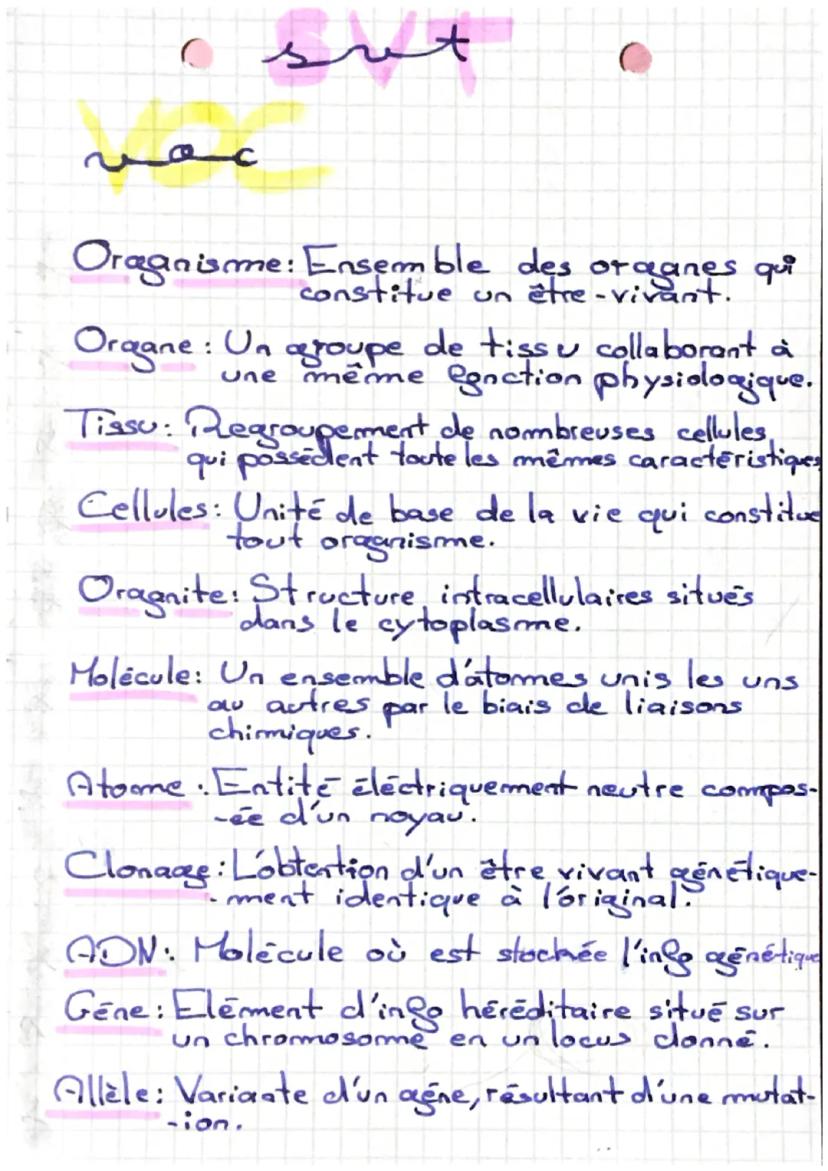 SVT
svt
VOC
voc
Organisme: Ensemble des organes qui
constitue un être-vivant.
Organe: Un groupe de tissu collaborant à
une même fonction physiologique.
Tissu: Regroupement de nombreuses cellules
qui possèdent toute les mêmes caractéristiques
Cellules: Unité de base de la vie qui constitue
tout organisme.
Organite: Structure intracellulaires situés
dans le cytoplasme.
Molécule: Un ensemble d'atomes unis les uns
au autres par le biais de liaisons
chimiques.
Atome: Entité électriquement neutre compos-
-ée d'un noyau.
Clonage: L'obtention d'un être vivant génétique-
-ment identique à l'original.
ADN: Molécule où est stockée l'info génétique
Gène: Elément d'info héréditaire situé sur
un chromosome en un locus donné.
Allèle: Variante d'un gène, résultant d'une mutat-
-ion.